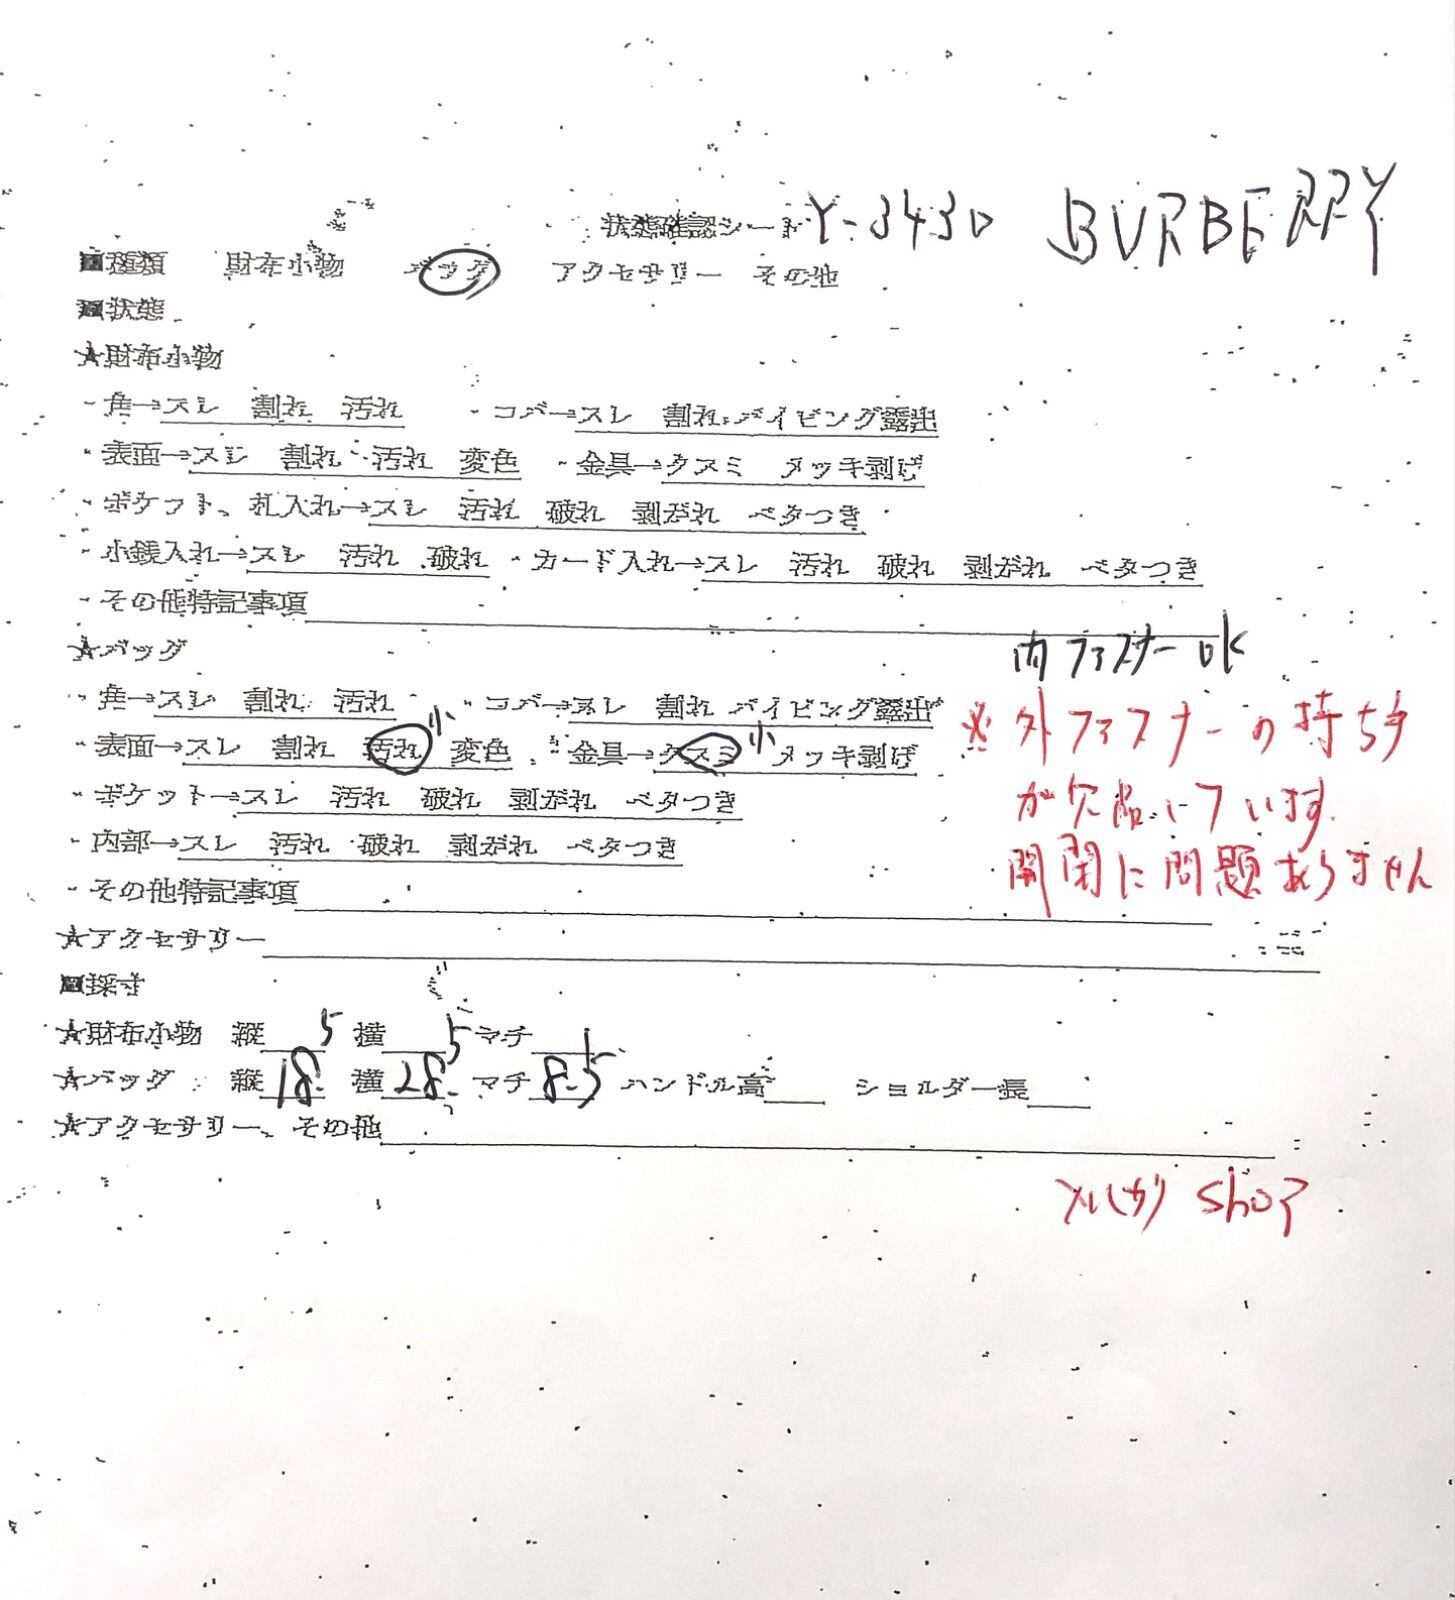 状態確認シート Y-3430 BURBERRY
■種類 財布小物 バッグ アクセサリー その他
■状態
★財布小物
・角→スレ 割れ 汚れ ・コバ→スレ 割れ パイピング露出
・表面→スレ 割れ 汚れ 変色 ・金具→クスミ メッキ剥げ
・ポケット、札入れ→スレ 汚れ 破れ 剥がれ ベタつき
・小銭入れ→スレ 汚れ 破れ ・カード入れ→スレ 汚れ 破れ 剥がれ ベタつき
・その他特記事項
★バッグ
内ファスナーOK
・角→スレ 割れ 汚れ ・コバ→スレ 割れ パイピング露出
・表面→スレ 割れ 汚れ 小 変色 ・金具→クスミ 小 メッキ剥げ
※外ファスナーの持ち手
が欠品しています
開閉に問題ありません
・ポケット→スレ 汚れ 破れ 剥がれ ベタつき
・内部→スレ 汚れ 破れ 剥がれ ベタつき
・その他特記事項
★アクセサリー
■採寸
★財布小物 縦 横 マチ
★バッグ 縦18.5 横28.5 マチ8.5 ハンドル高 ショルダー長
★アクセサリー、その他
shop